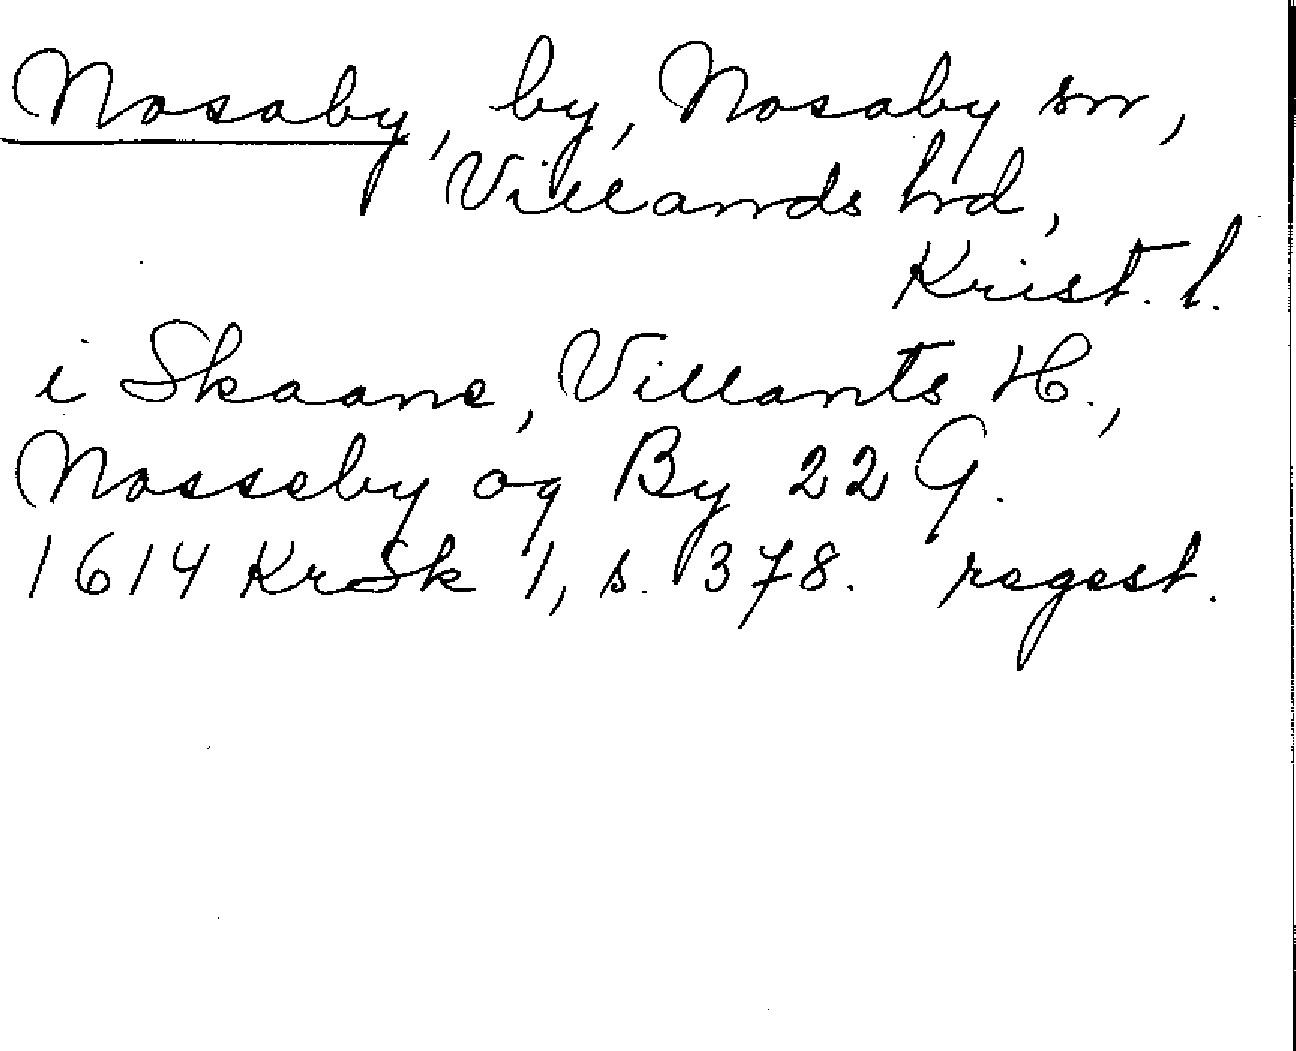 Nosaby, by, Nosaby sn,
Villands hd,
Krist. l.
i Skaane, Villants H.,
Nosseby og By 22 G.
1614 KrSk 1, s. 378. regest.